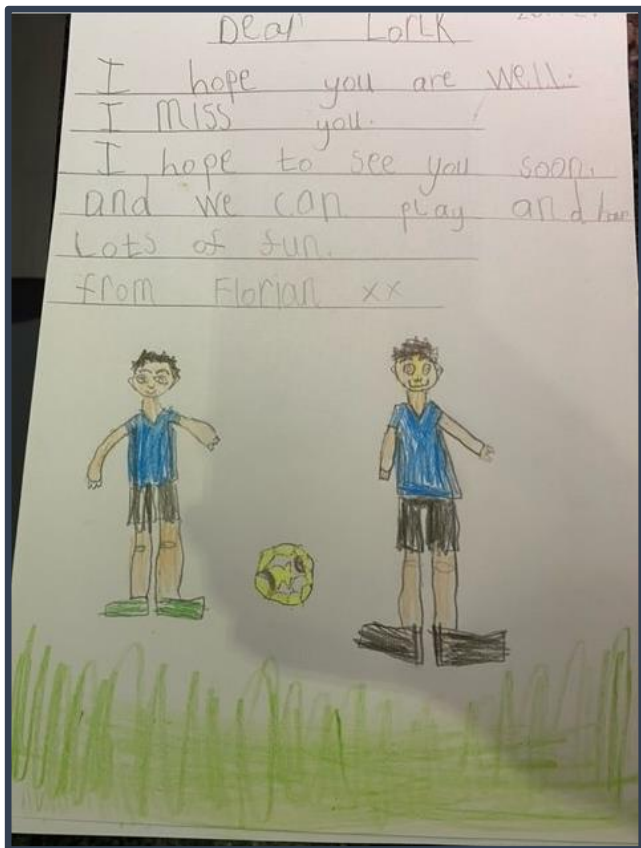 Dear Lorik
I hope you are well.
I miss you.
I hope to see you soon.
and we can play and have
Lots of fun.
from Florian xx